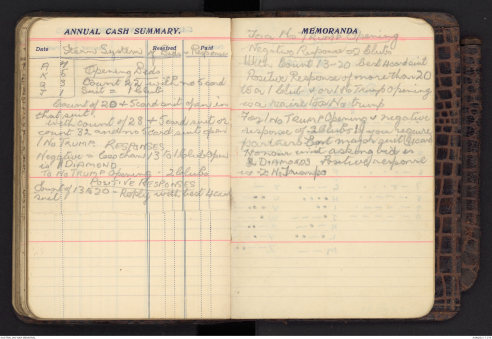 ANNUAL CASH SUMMARY.
Date Received Paid
Stern System of
A 7 Opening Bids
K 5
Q 3 Count 22 with no 5 card
J 1 Suit = 1 Club
Count of 20 + 5 card suit open in
that suit
With count of 28 + 5 card suit or
count 32 and no 5 card suit open
1 No TRUMP. RESPONSES
Negative = Less than 13 To 1 club open
is 1 DIAMOND
To No TRUMP Opening - 2 Clubs
POSITIVE RESPONSES
Count of 13 to 20 - Reply with best 4 card
suit.
MEMORANDA
For a No TRUMP Opening
Negative Response is 2 clubs
With Count 13-20 best 4 card suit
Positive Response of more than 20
to a 1 club or 1 No Trump Opening
is a raise to No trump
For 1 No TRUMP Opening & negative
response of 2 clubs if you require
partners best major suit 4 card
Honour asking bid is
2 DIAMONDS Positive response
is 2 No Trumps